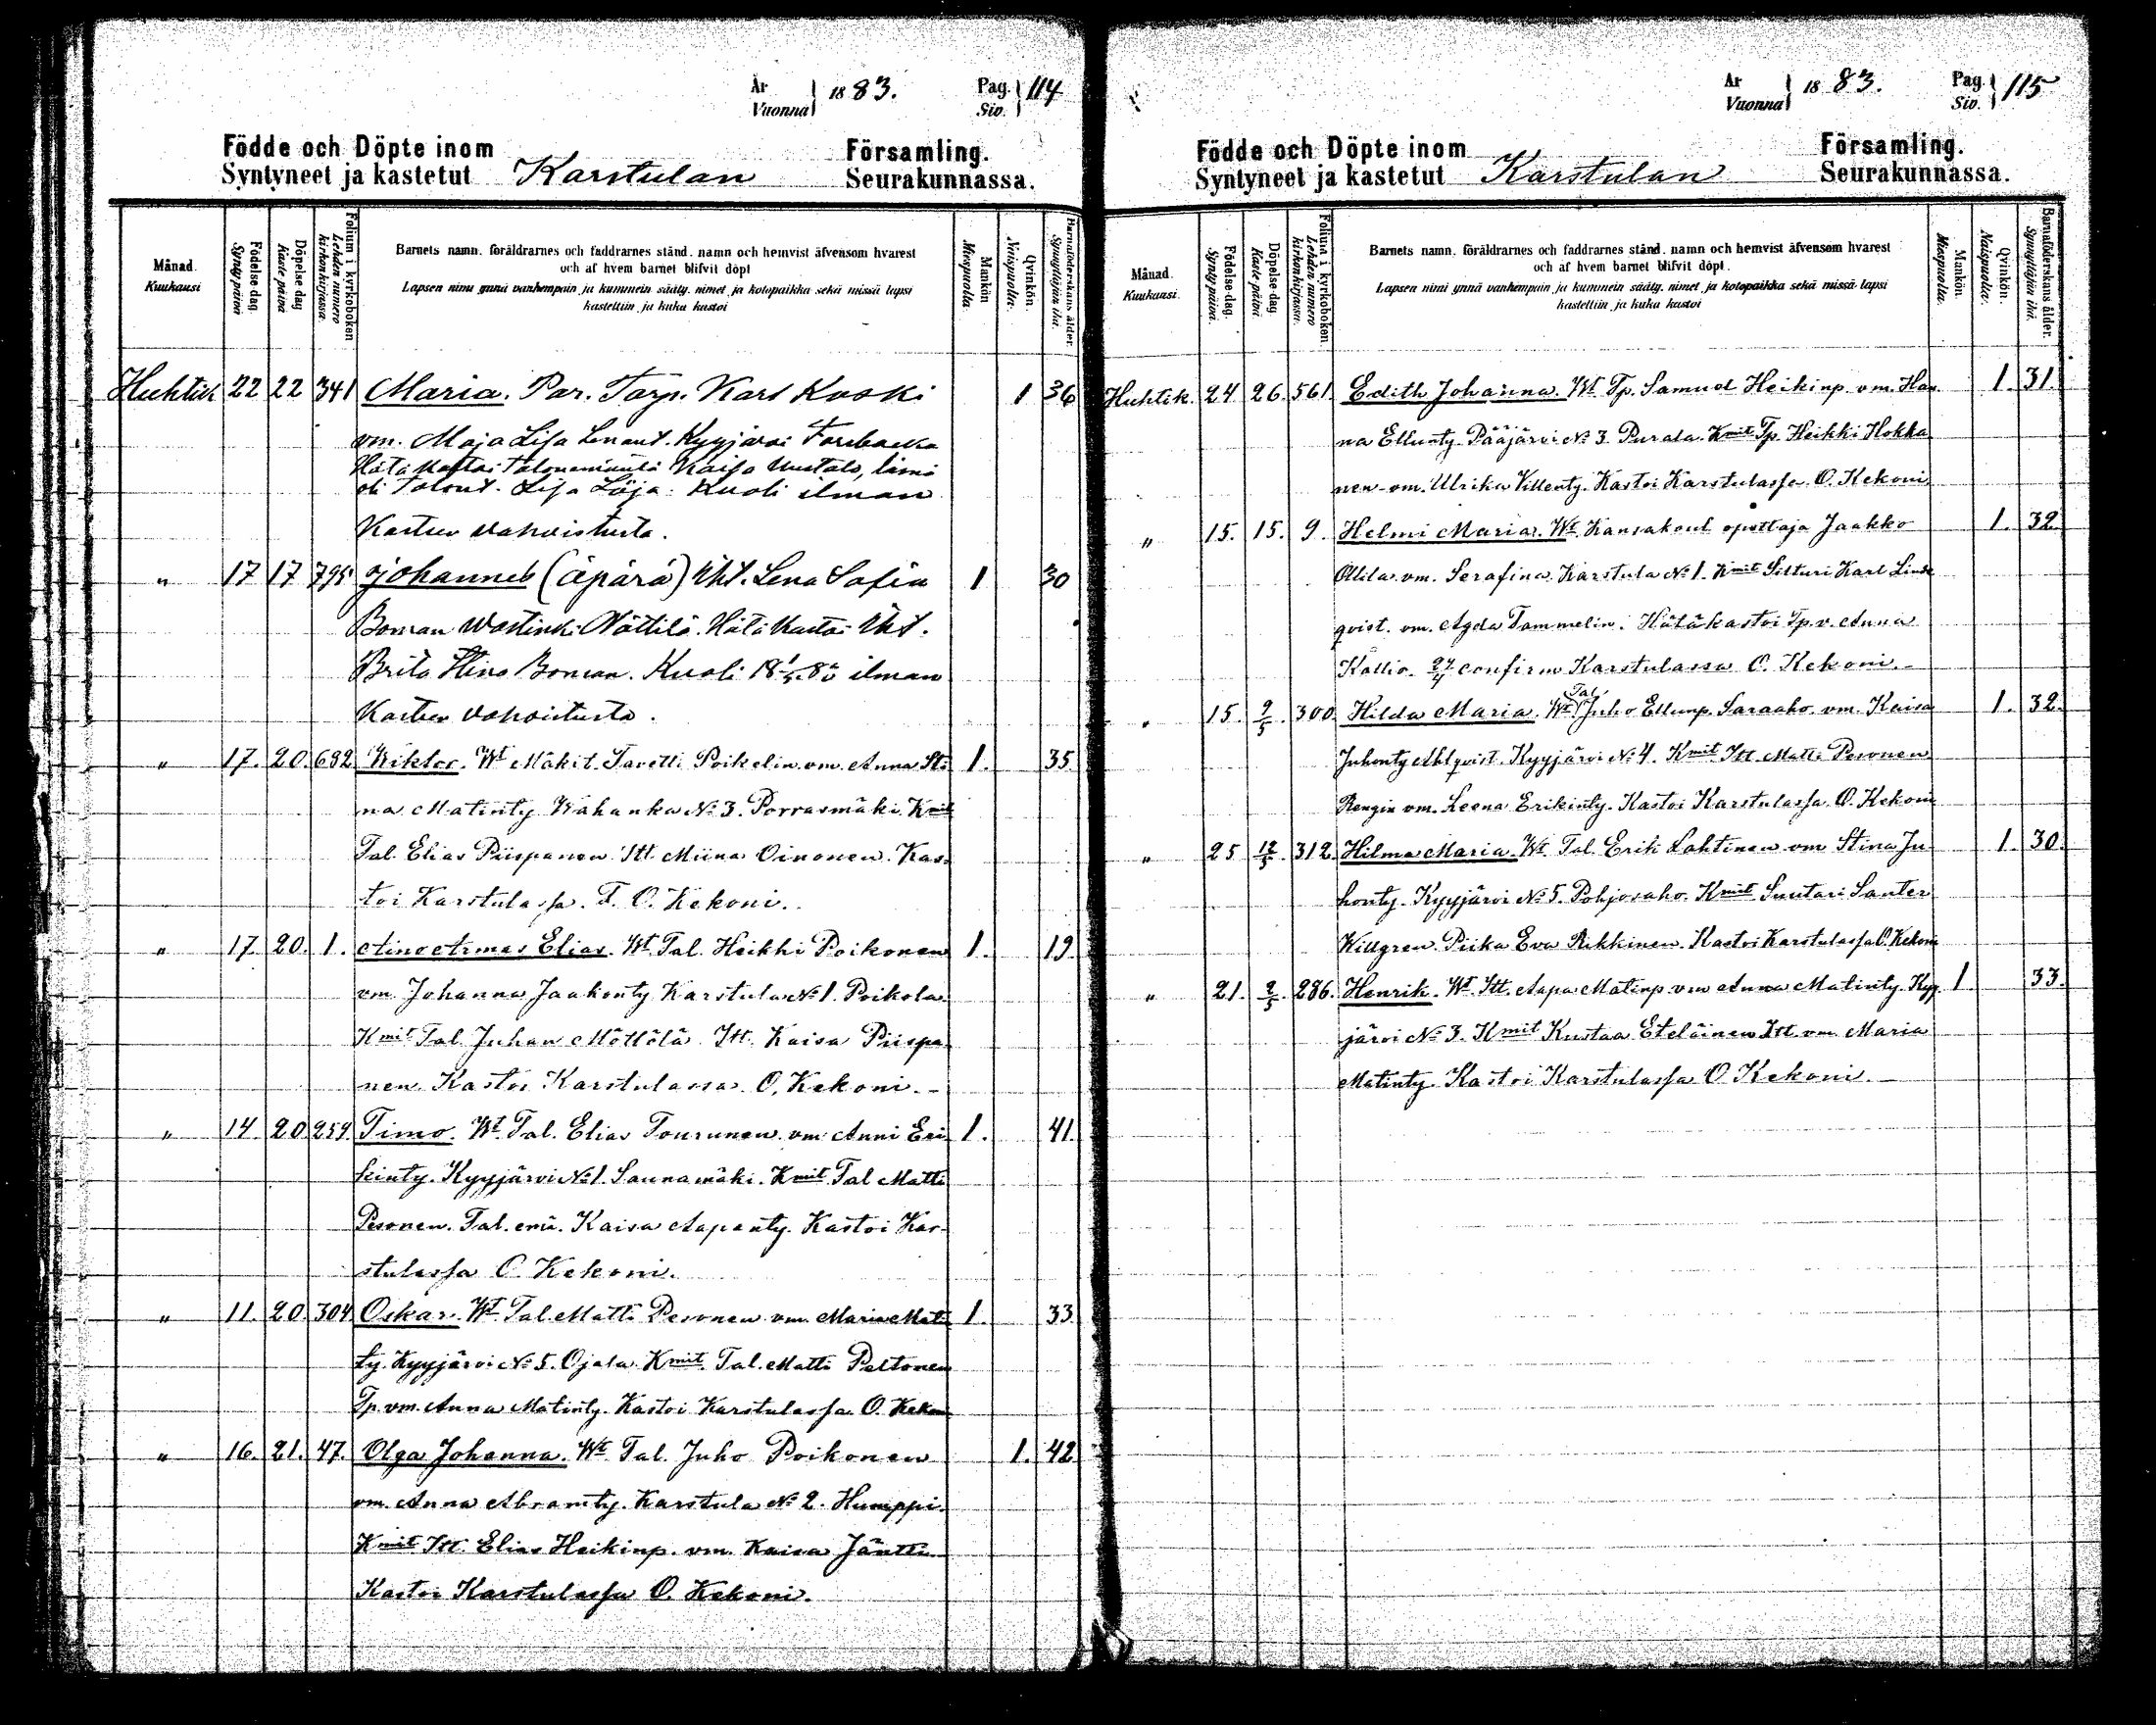 År Vuonna 1883. Pag. Siv. 114
Födde och Döpte inom Församling.
Syntyneet ja kastetut Karstulan Seurakunnassa.
Månad. Kuukausi
Födelse dag. Synty päivä
Döpelse dag Kaste päivä
Folium i kyrkoboken Lehden numero kirkonkirjassa.
Barnets namn, föräldrarnes och faddrarnes stånd, namn och hemvist äfvensom hvarest
och af hvem barnet blifvit döpt
Lapsen nimi ynnä vanhempain ja kummein sääty, nimet ja kotopaikka sekä missä lapsi
kastettiin ja kuka kastoi
Mankön Miespuolta.
Qvinkön. Naispuolta.
Barnaföderskans ålder. Synnyttäjän ikä.
Huhtik 22 22 341 Maria. Par. Torp. Karl Koski 1 36
vm. Maja Lisa Kyyjärvi
Hätäkastoi Kaisa
oli Lisa Kuoli ilman
Kasteen vahvistusta.
" 17 17 795 Johannes (äpärä) Lena Sofia 1 30
Boman Wastinki Hätäkastoi
Brita Stina Boman. Kuoli ilman
Kasteen vahvistusta.
" 17. 20. 682 Wiktor. Wt Mäkit. Tavetti Poikelin vm. Anna Sti 1. 35.
na Matinty. Wahanka No 3. Porrasmäki. Kmit
Tal. Elias Piispanen Itt. Miina Oinonen. Kas-
toi Karstulassa. F. O. Kekoni.
" 17. 20. 1. Aino Armas Elias. Wt. Tal. Heikki Poikonen 1. 19.
vm. Johanna Jaakonty. Karstula No 1. Poikola.
Kmit Tal. Juhan Möttölä. Itt. Kaisa Piispa
nen. Kastoi Karstulassa. O. Kekoni.-
" 14 20 259 Timo. Wt. Tal. Elias Tourunen. vm. Anni Eri 1. 41.
kinty. Kyyjärvi No 1. Saunamäki. Kmit Tal Matti
Pesonen. Tal. emä. Kaisa Aapanty. Kastoi Kar-
stulassa O. Kekoni.
" 11. 20. 304 Oskar. Wt. Tal. Matti Pesonen vm. Maria Mati 1. 33
ty. Kyyjärvi No 5. Ojala. Kmit. Tal. Matti Peltonen
Tp. vm. Anna Matinty. Kastoi Karstulassa O. Kekoni
" 16. 21. 47. Olga Johanna. Wt. Tal. Juho Poikonen 1. 42
vm. Anna Abramty. Karstula No 2. Humppi.
Kmit Itt. Elias Heikinp. vm. Kaisa Jäntti
Kastoi Karstulassa O. Kekoni.
År Vuonna 1883. Pag. Siv. 115
Födde och Döpte inom Församling.
Syntyneet ja kastetut Karstulan Seurakunnassa.
Månad. Kuukausi.
Födelse-dag. Synty päivä.
Döpelse dag. Kaste päivä
Folium i kyrkoboken. Lehden numero kirkonkirjassa.
Barnets namn, föräldrarnes och faddrarnes stånd, namn och hemvist äfvensom hvarest
och af hvem barnet blifvit döpt.
Lapsen nimi ynnä vanhempain ja kummein sääty, nimet ja kotopaikka sekä missä lapsi
kastettiin ja kuka kastoi
Mankön. Miespuolta.
Qvinkön. Naispuolta.
Barnaföderskans ålder. Synnyttäjän ikä.
Huhtik. 24 26. 561. Edith Johanna. Wt Tp. Samuel Heikinp. vm. Han 1. 31.
na Ellunty. Pääjärvi No 3. Purala. Kmit Tp. Heikki Hokka
nen vm. Ulrika Villenty. Kastoi Karstulassa. O. Kekoni
" 15. 15. 9. Helmi Maria. Wt. Kansakoul opettaja Jaakko 1. 32.
Ollila vm. Serafina. Karstula No 1. Kmit Silturi Karl Lind
qvist. vm. Agda Tammelin. Hätäkastoi Tp. v. Anna
Kallio. 27/4 confirm Karstulassa O. Kekoni.-
" 15. 9/5. 300. Hilda Maria. Wt Tal. Juho Ellunp. Saraaho. vm. Kaisa 1. 32.
Juhonty Ahlqvist. Kyyjärvi No 4. Kmit. Itt. Matti Pesonen
Rengin vm. Leena Erikinty. Kastoi Karstulassa. O. Kekoni
" 25 12/5. 312. Hilma Maria. Wt. Tal. Erik Lahtinen vm Stina Ju 1. 30.
honty. Kyyjärvi No 5. Pohjosaho. Kmit. Suutari Santer
Killgren. Piika Eva Rikkinen. Kastoi Karstulassa O. Kekoni
" 21. 2/5. 286. Henrik. Wt. Itt. Aapa Matinp. vm Anna Matinty. Kyy. 1. 33.
järvi No 3. Kmit Kustaa Eteläinen Itt. vm. Maria
Matinty. Kastoi Karstulassa O Kekoni.-